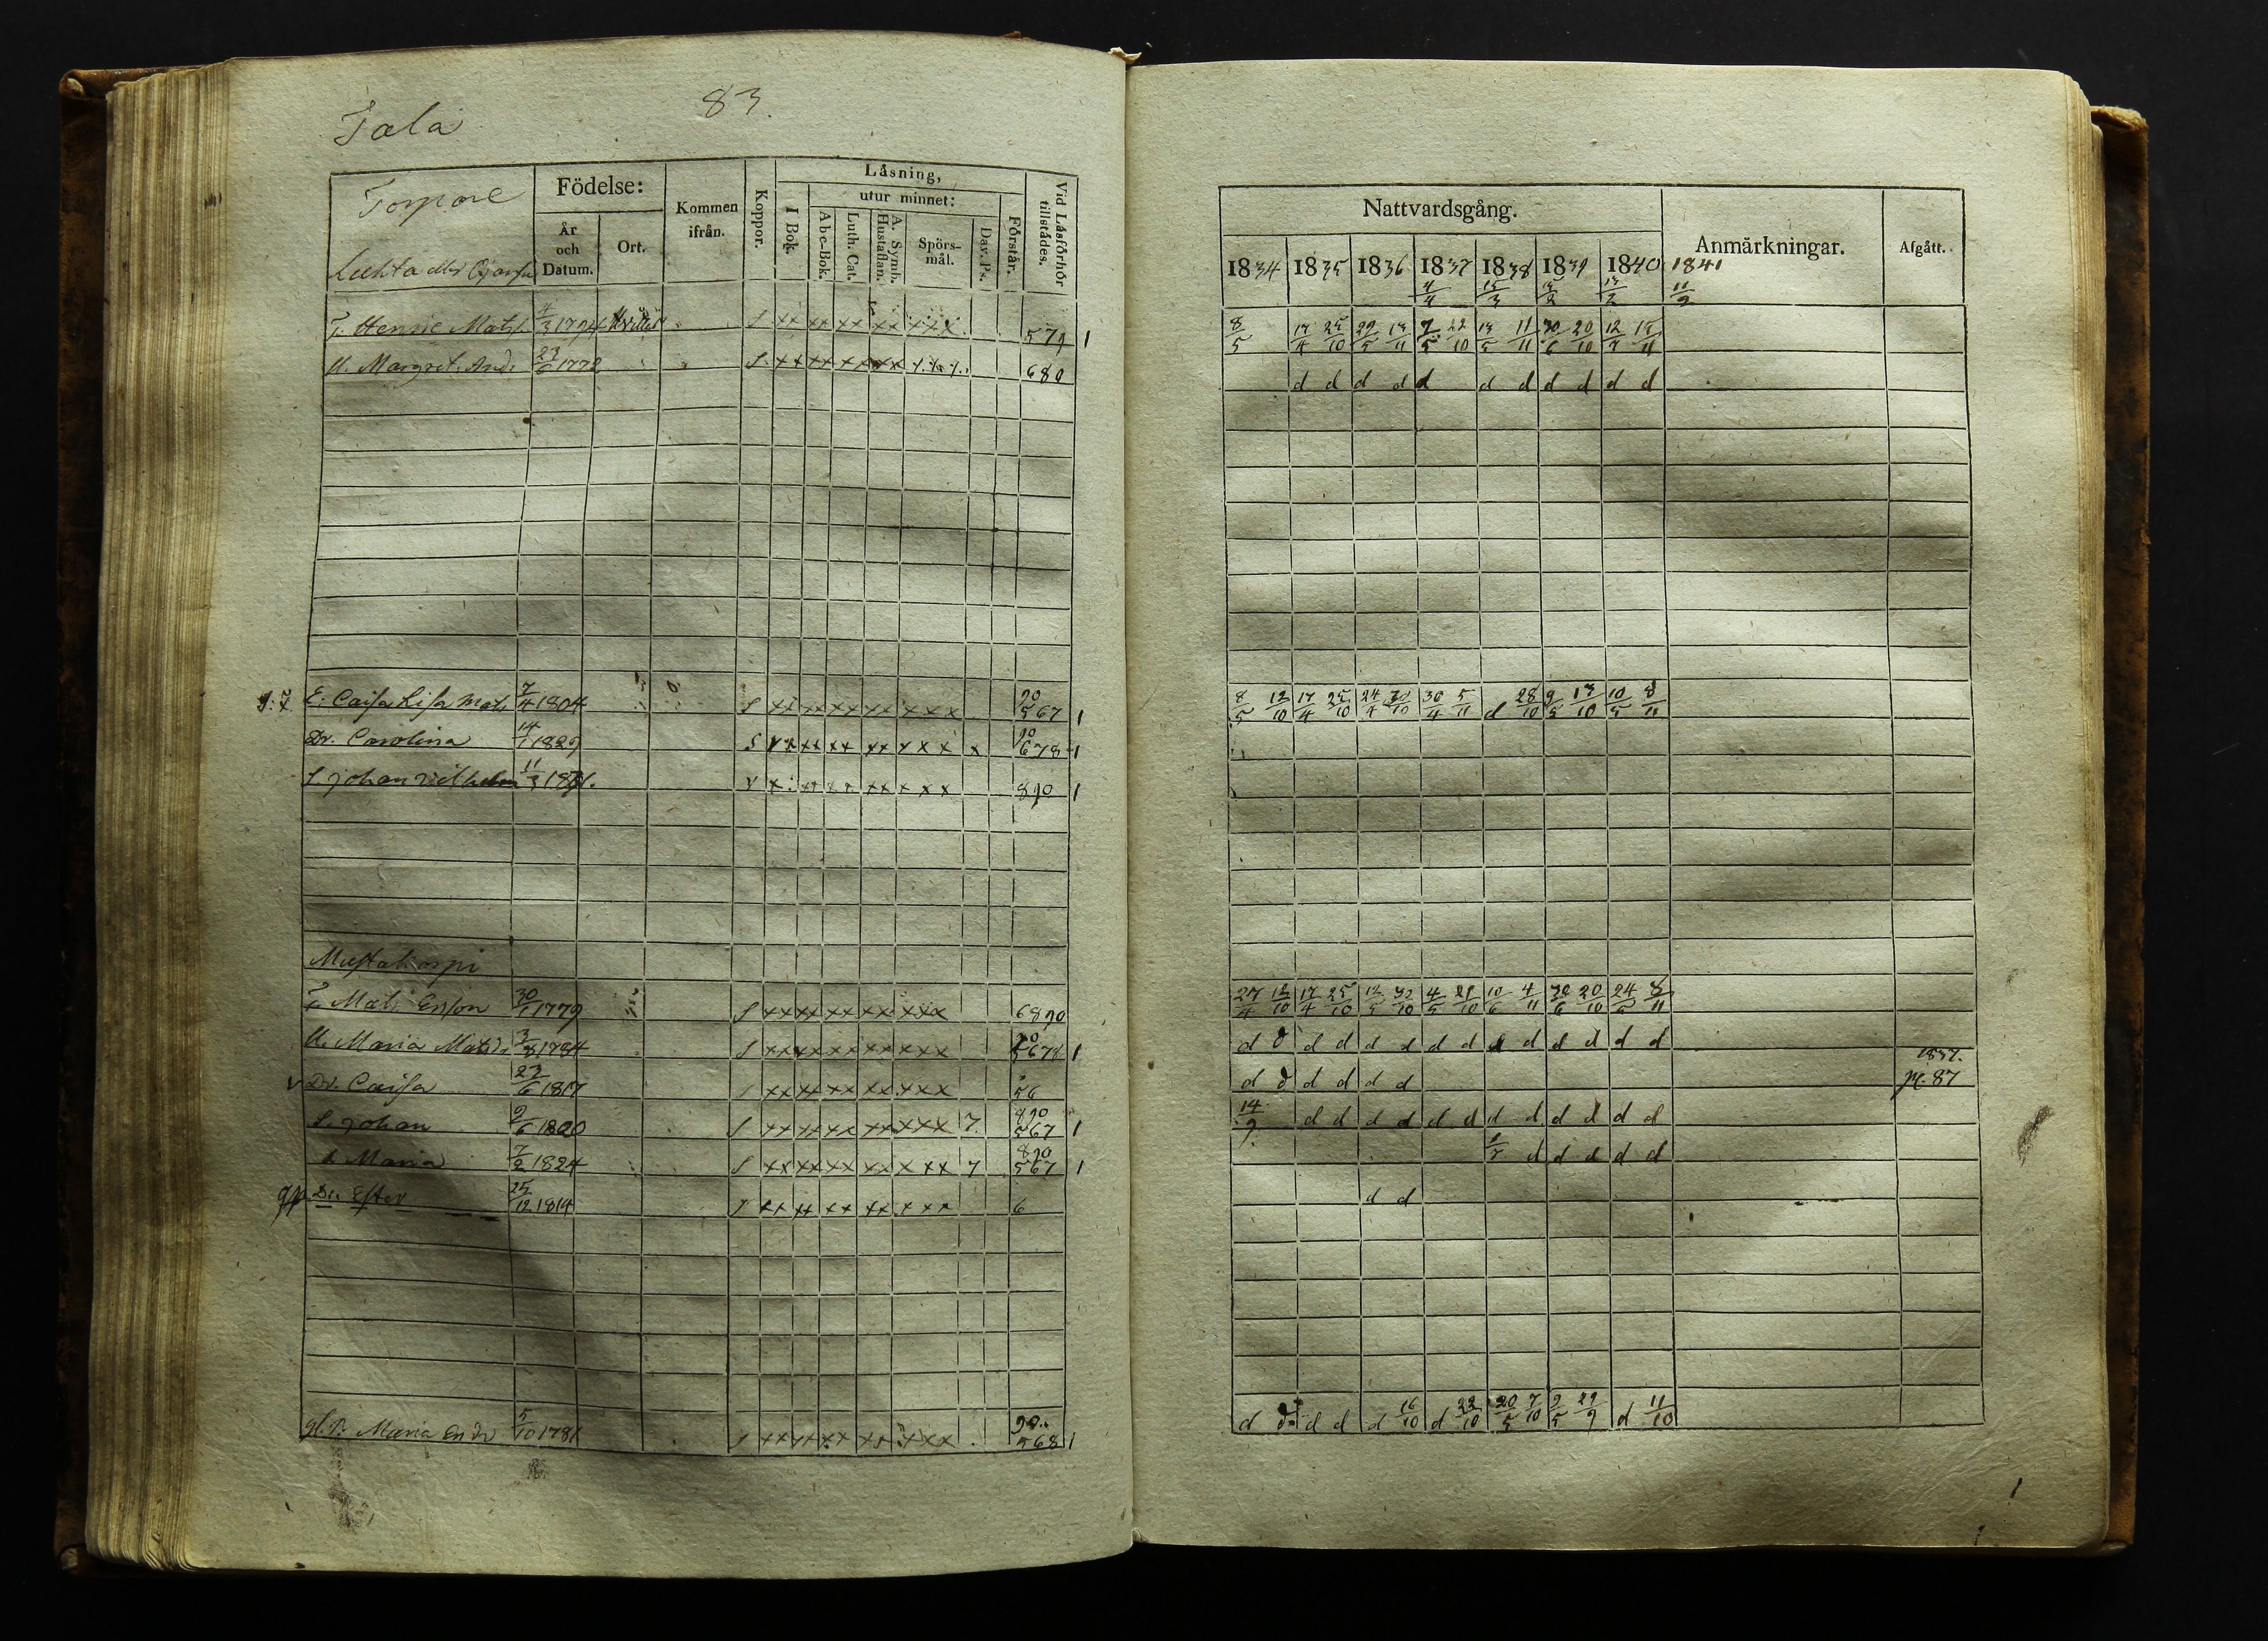 83.
Tala
Torpare
Luhta
Födelse:
År och Datum.
Ort.
Kommen ifrån.
Koppor.
Låsning,
I Bok.
utur minnet:
Abc-Bok.
Luth. Cat.
A. Symb. Hustaflan.
Spörsmål.
Dav. Ps.
Förstår.
Vid Låsförhör tillstådes.
T. Henric Mats. 4/3 1794 579 1
U. Margret. And. 1772 680
E: Caisa Lisa Mats 7/4 1804 S xx xx xx xx xxx 90 567 1
Dr. Carolina 14/1 1829 S xx xx xx xx xxx x 90 678 1
S. Johan Vilhelm 11/3 v x 890 1
T. Mats Ersson 30/1 1779 S xx xx xx xx xxx 6890
U. Maria Matsd. 3/8 1784 S xx xx xx xx xxx 5678 1
v Dr. Caisa 23/6 1817 xx xx xx xx xxx 56
S. Johan 9/6 1820 S xx xx xx xx xxx 7 890 567 1
d. Maria 7/2 1824 S xx xx xx xx xxx 7 890 567 1
Dr. Ester 25/12 1814 xx xx xx xx xxx 6
Maria 5/10 1781 xx xx xx xx xxx 90 568 1
Nattvardsgång.
Anmärkningar.
Afgått.
1834 1835 1836 1837 1838 1839 1840 1841
4/4 15/3 13/2 11/2
8/5 17/4 25/10 29/5 13/11 7/5 22/10 13/5 11/11 30/6 20/10 12/7 15/11
d d d d d d d d d d d
8/5 12/10 17/4 25/10 24/4 30/10 30/4 5/11 d 28/10 9/5 13/10 10/5 8/11
27/4 12/10 17/4 25/10 12/5 30/10 4/5 29/10 10/6 4/11 30/6 20/10 24/5 8/11
d d d d d d d d d d d d d d
d d d d d d 1837. p. 87
14/9 d d d d d d d d d d d d
d d d d d
d d
d d d d d 16/10 d 22/10 20/5 7/10 9/5 29/9 d 11/10